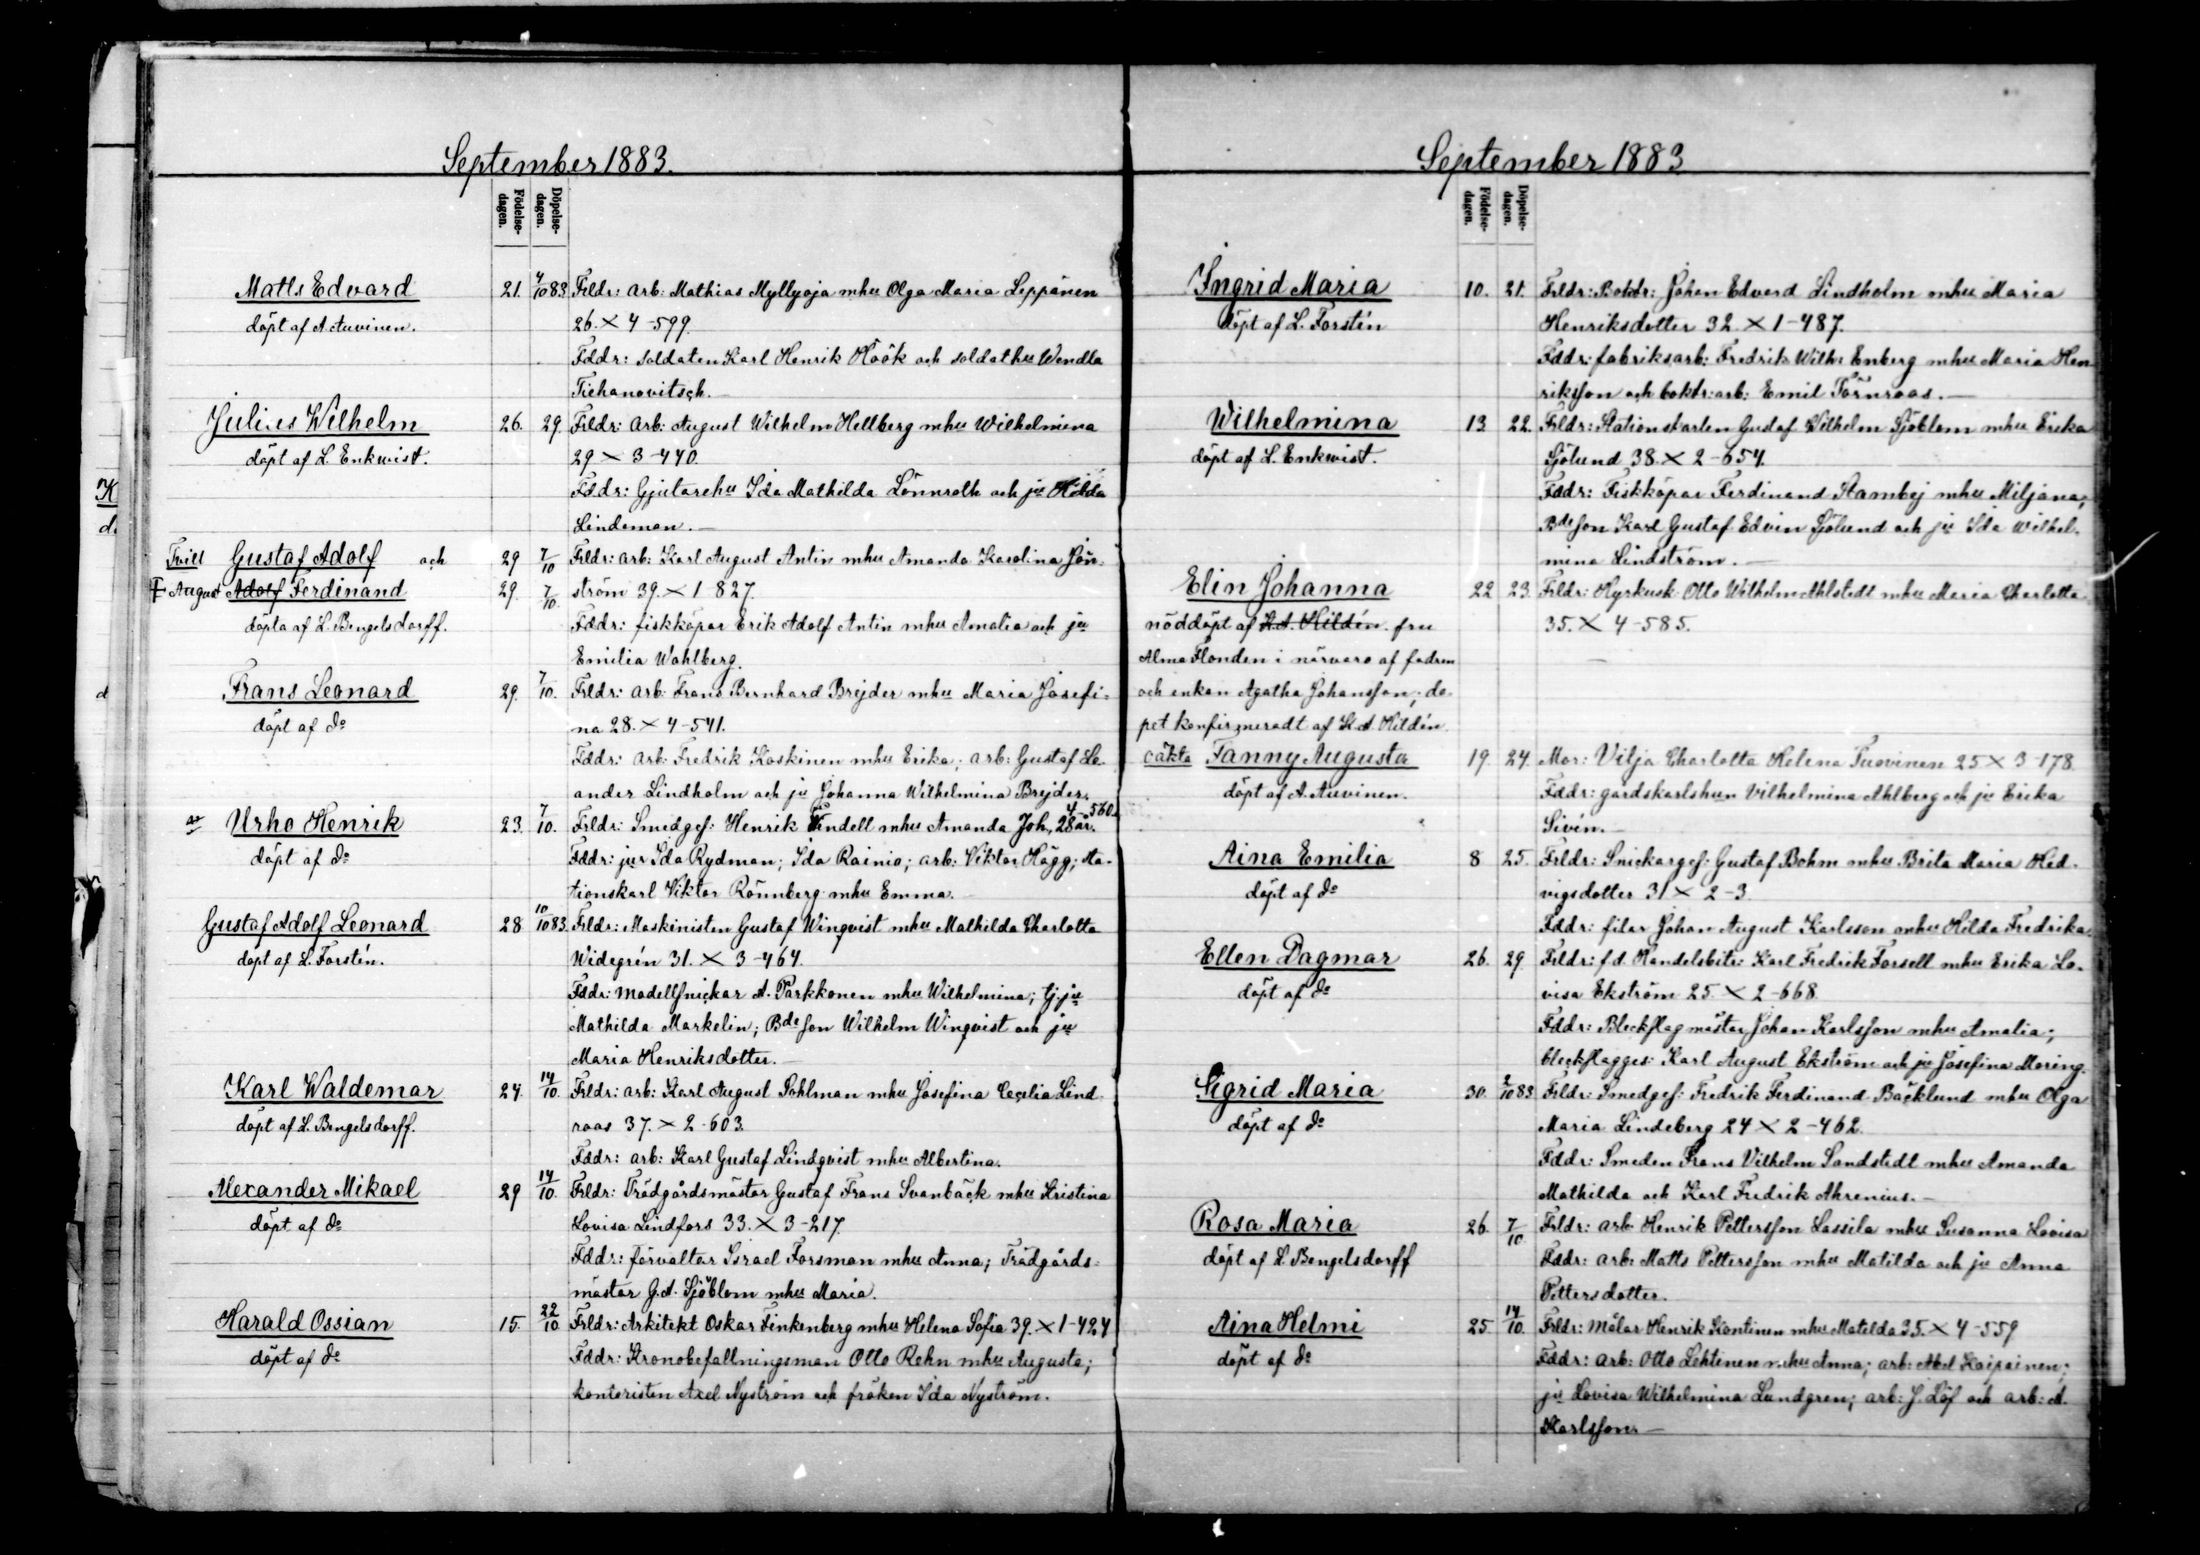 September 1883.
Födelse-dagen. Döpelse-dagen.
Matts Edvard 21. 7/10 83 Frldr: arb: Mathias Myllyoja mhu Olga Maria Leppänen
döpt af A. Auvinen. 26. × 4-599.
Fddr: soldaten Karl Henrik Höök och soldathu Wendla
Tichanovitsch.
Julius Wilhelm 26. 29. Frldr: arb: August Wilhelm Hellberg mhu Wilhelmina
döpt af L. Enkwist. 29 × 3-440.
Fddr: Gjutarehu Ida Mathilda Lönnroth och ju Hilda
Lindeman.
Tvill Gustaf Adolf och 29 7/10 Frldr: arb: Karl August Antin mhu Amanda Karolina Jön-
August Adolf Ferdinand 29. 7/10. ström 39. × 1-827.
döpta af L. Bengelsdorff. Fddr: fiskköpar Erik Adolf Antin mhu Amalia och ju
Emilia Wahlberg.
Frans Leonard 29. 7/10. Frldr: arb: Frans Bernhard Brejder mhu Maria Josefi-
döpt af do na 28. × 4-541.
Fddr: arb: Fredrik Koskinen mhu Erika; arb: Gustaf Le-
ander Lindholm och ju Johanna Wilhelmina Brejder.
Urho Henrik 23. 7/10. Frldr: Smedges: Henrik Vendell mhu Amanda Joh. 28 år. 4-560.
döpt af do Fddr: jur Ida Rydman; Ida Rainio; arb: Viktor Hägg; sta-
tionskarl Viktor Rönnberg mhu Emma.
Gustaf Adolf Leonard 28 10/10 83. Frldr: Maskinisten Gustaf Winqvist mhu Mathilda Charlotta
döpt af L. Forstén. Widegrén 31. × 3-464.
Fddr: Modellsnickar A. Parkkonen mhu Wilhelmina; tj. ju
Mathilda Markelin; Bdeson Wilhelm Winqvist och ju
Maria Henriksdotter.
Karl Waldemar 24. 14/10. Frldr: arb: Karl August Pohlman mhu Josefina Cecilia Lind-
döpt af L. Bengelsdorff. roos 37. × 2-603.
Fddr: arb: Karl Gustaf Lindqvist mhu Albertina.
Alexander Mikael 29 14/10. Frldr: Trädgårdsmästar Gustaf Frans Svanbäck mhu Kristina
döpt af do Lovisa Lindfors 33. × 3-217.
Fddr: förvaltar Israel Forsman mhu Anna; Trädgårds-
mästar G.A. Sjöblom mhu Maria.
Harald Ossian 15. 22/10 Frldr: Arkitekt Oskar Finkenberg mhu Helena Sofia 39. × 1-424
döpt af do Fddr: Kronobefallningsman Otto Rehn mhu Augusta;
kontoristen Axel Nyström och fröken Ida Nyström.
September 1883
Födelse-dagen. Döpelse-dagen.
Ingrid Maria 10. 21. Frldr: Boktr: Johan Edvard Lindholm mhu Maria
döpt af L. Forstén Henriksdotter 32. × 1-487.
Fddr: fabriksarb: Fredrik Wilh: Enberg mhu Maria Hen-
riksson och boktr: arb: Emil Törnroos.
Wilhelmina 13 22. Frldr: Stationskarlen Gustaf Wilhelm Sjöblom mhu Erika
döpt af L. Enkwist. Sjölund 38. × 2-654.
Fddr: Fiskköpar Ferdinand Stambej mhu Miljana;
Bdeson Karl Gustaf Edvin Sjölund och ju Ida Wilhel-
mina Lindström.
Elin Johanna 22 23. Frldr: Hyrkusk Otto Wilhelm Ahlstedt mhu Maria Charlotta
nöddöpt af K.A. Hildén. fru 35. × 4-585.
Alma Flonden i närvaro af fadren
och enkan Agatha Johansson; do-
pet konfirmeradt af K.A. Hildén.
oäkta Fanny Augusta 19. 24. Mor: Vilja Charlotta Helena Tuovinen 25 × 3-178
döpt af A. Auvinen. Fddr: gardskarlshun Vilhelmina Ahlberg och ju Erika
Sivén.
Aina Emilia 8 25. Frldr: Snickarges: Gustaf Bohm mhu Brita Maria Hed-
döpt af do vigsdotter 31 × 2-3
Fddr: filar Johan August Karlsson mhu Hilda Fredrika.
Ellen Dagmar 26. 29. Frldr: f.d. Handelsbitr: Karl Fredrik Forsell mhu Erika Lo-
döpt af do visa Ekström 25. × 2-668
Fddr: Bleckslag mästar Johan Karlsson mhu Amalia;
bleckslagges: Karl August Ekström och ju Josefina Moring.
Sigrid Maria 30. 2/10 83 Frldr: Smedges: Fredrik Ferdinand Bäcklund mhu Olga
döpt af do Maria Lindeberg 24 × 2-462.
Fddr: Smeden Frans Vilhelm Sandstedt mhu Amanda
Mathilda och Karl Fredrik Ahrenius.
Rosa Maria 26. 7/10 Frldr: arb. Henrik Pettersson Lassila mhu Susanna Lovisa
döpt af L. Bengelsdorff Fddr: arb: Matts Pettersson mhu Matilda och ju Anna
Pettersdotter.
Aina Helmi 25 14/10. Frldr: Målar Henrik Kontinen mhu Matilda 35. × 4-559
döpt af do Fddr: arb: Otto Lehtinen mhu Anna; arb: Abel Kaipainen;
ju Lovisa Wilhelmina Lundgren; arb: J. Löf och arb: A.
Karlsson.